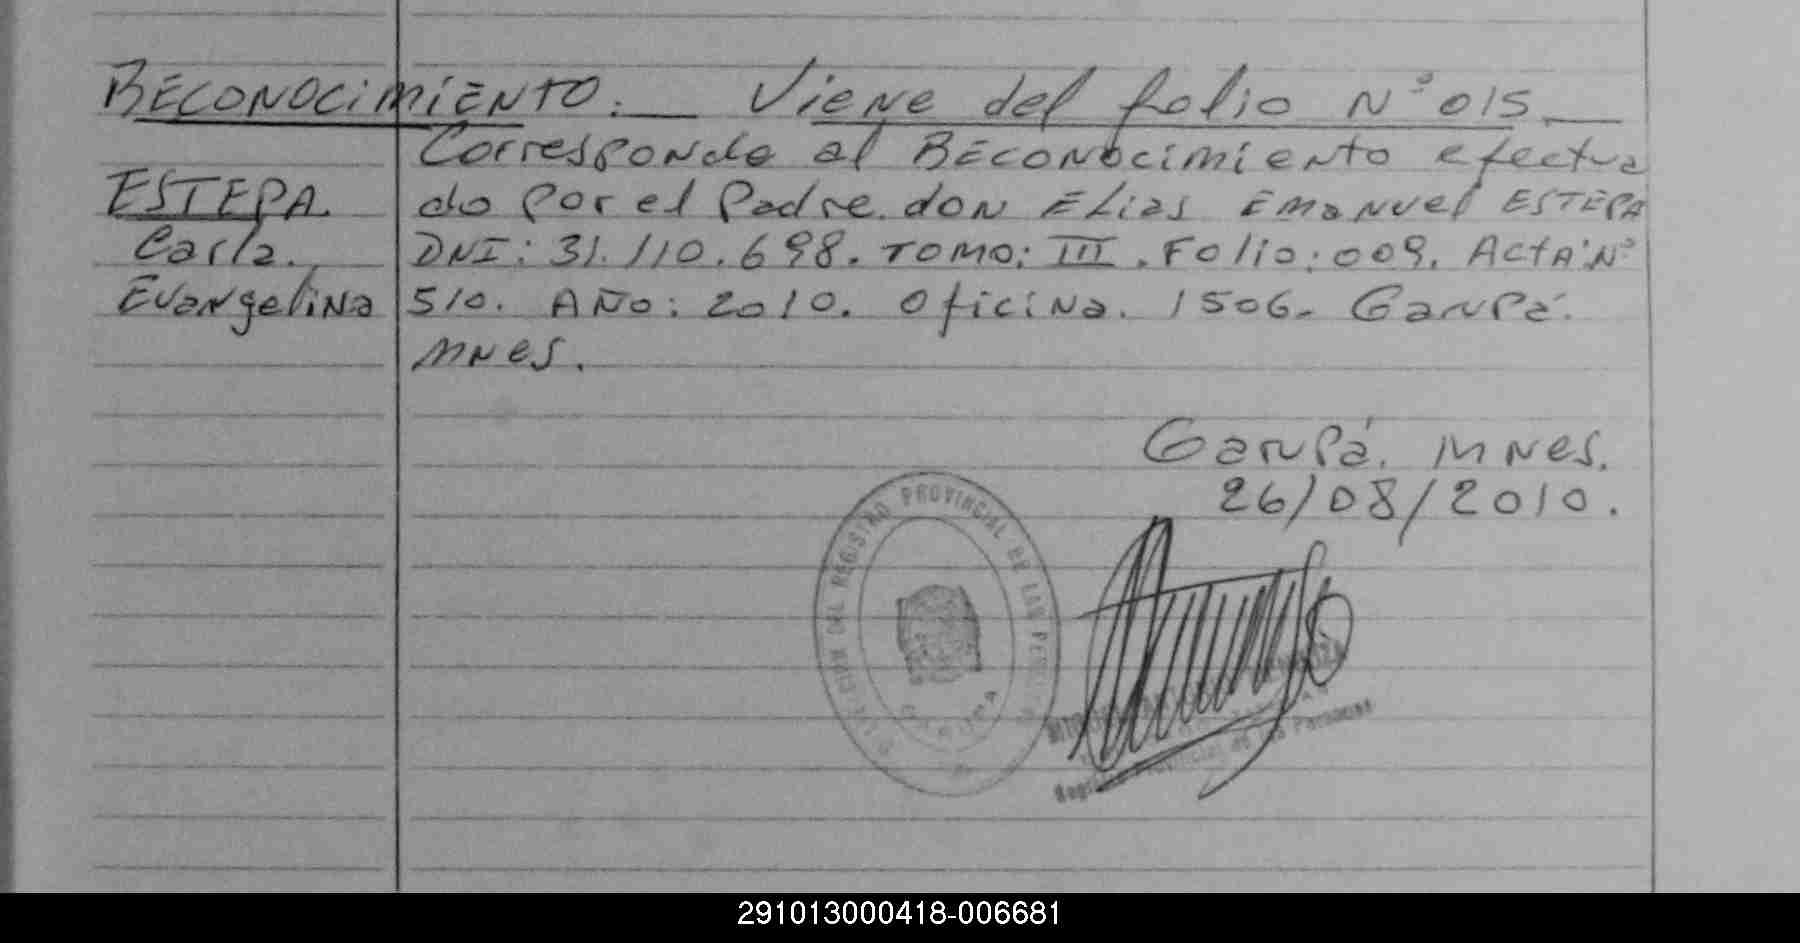 RECONOCIMIENTO. Viene del folio N° 015
Corresponde al RECONOCIMIENTO efectua
ESTEPA do por el Padre don ELIAS EMANUEL ESTEPA
Carla. DNI: 31.110.698. TOMO: III. Folio: 009. Acta N°
Evangelina 510. AÑO: 2010. Oficina. 1506. Garupá.
MNES.
Garupá. MNES.
26/08/2010.
DIRECCION DEL REGISTRO PROVINCIAL DE LAS PERSONAS
Provincial de las Personas
291013000418-006681